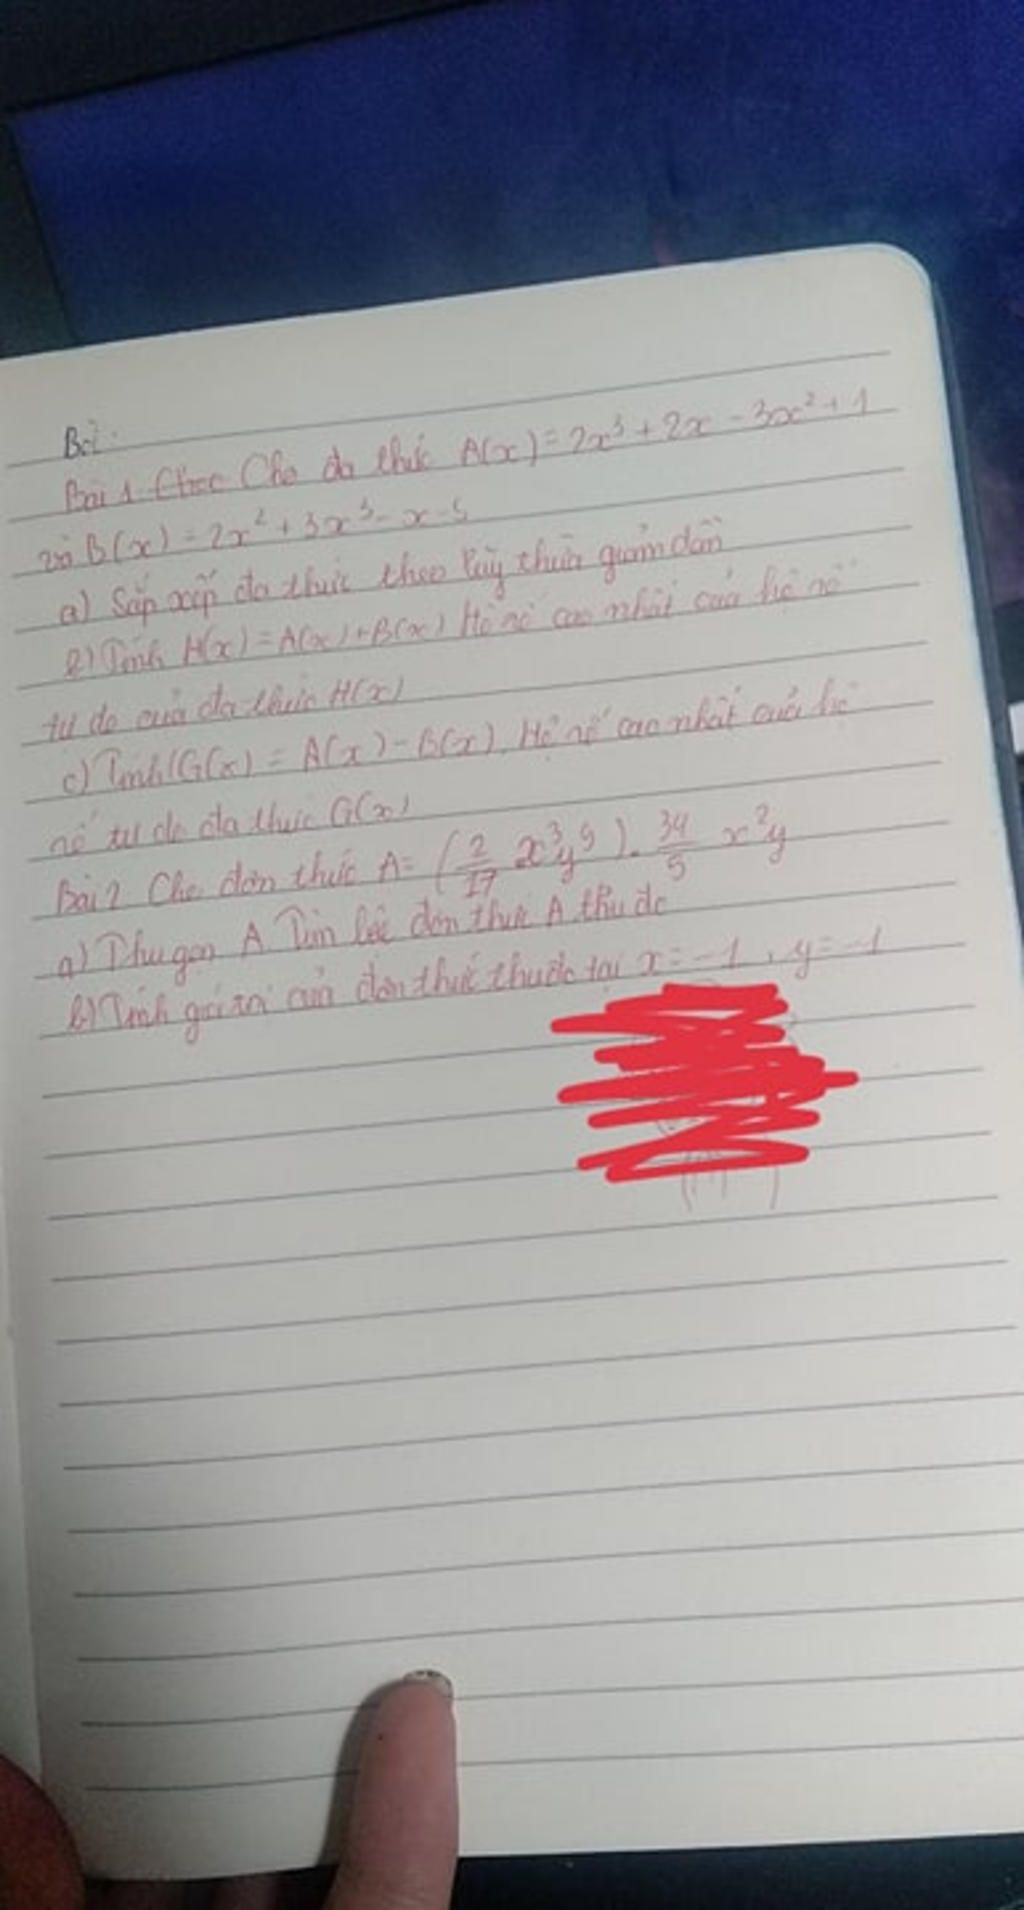 Bài:
Bài 1 Choc Cho đa thức A(x) = 2x³ + 2x - 3x² + 1
và B(x) = 2x² + 3x³ - x - 5
a) Sắp xếp đa thức theo lũy thừa giảm dần
b) Tính H(x) = A(x) + B(x) Hệ số cao nhất của hệ số
tự do của đa thức H(x)
c) Tính G(x) = A(x) - B(x). Hệ số cao nhất của hệ
số tự do đa thức G(x)
Bài 2 Cho đơn thức A = (2/17 x³y⁵) . 34/5 x²y
a) Thu gọn A Tìm bậc đơn thức A thu đc
b) Tính giá trị của đơn thức thu đc tại x = -1, y = -1